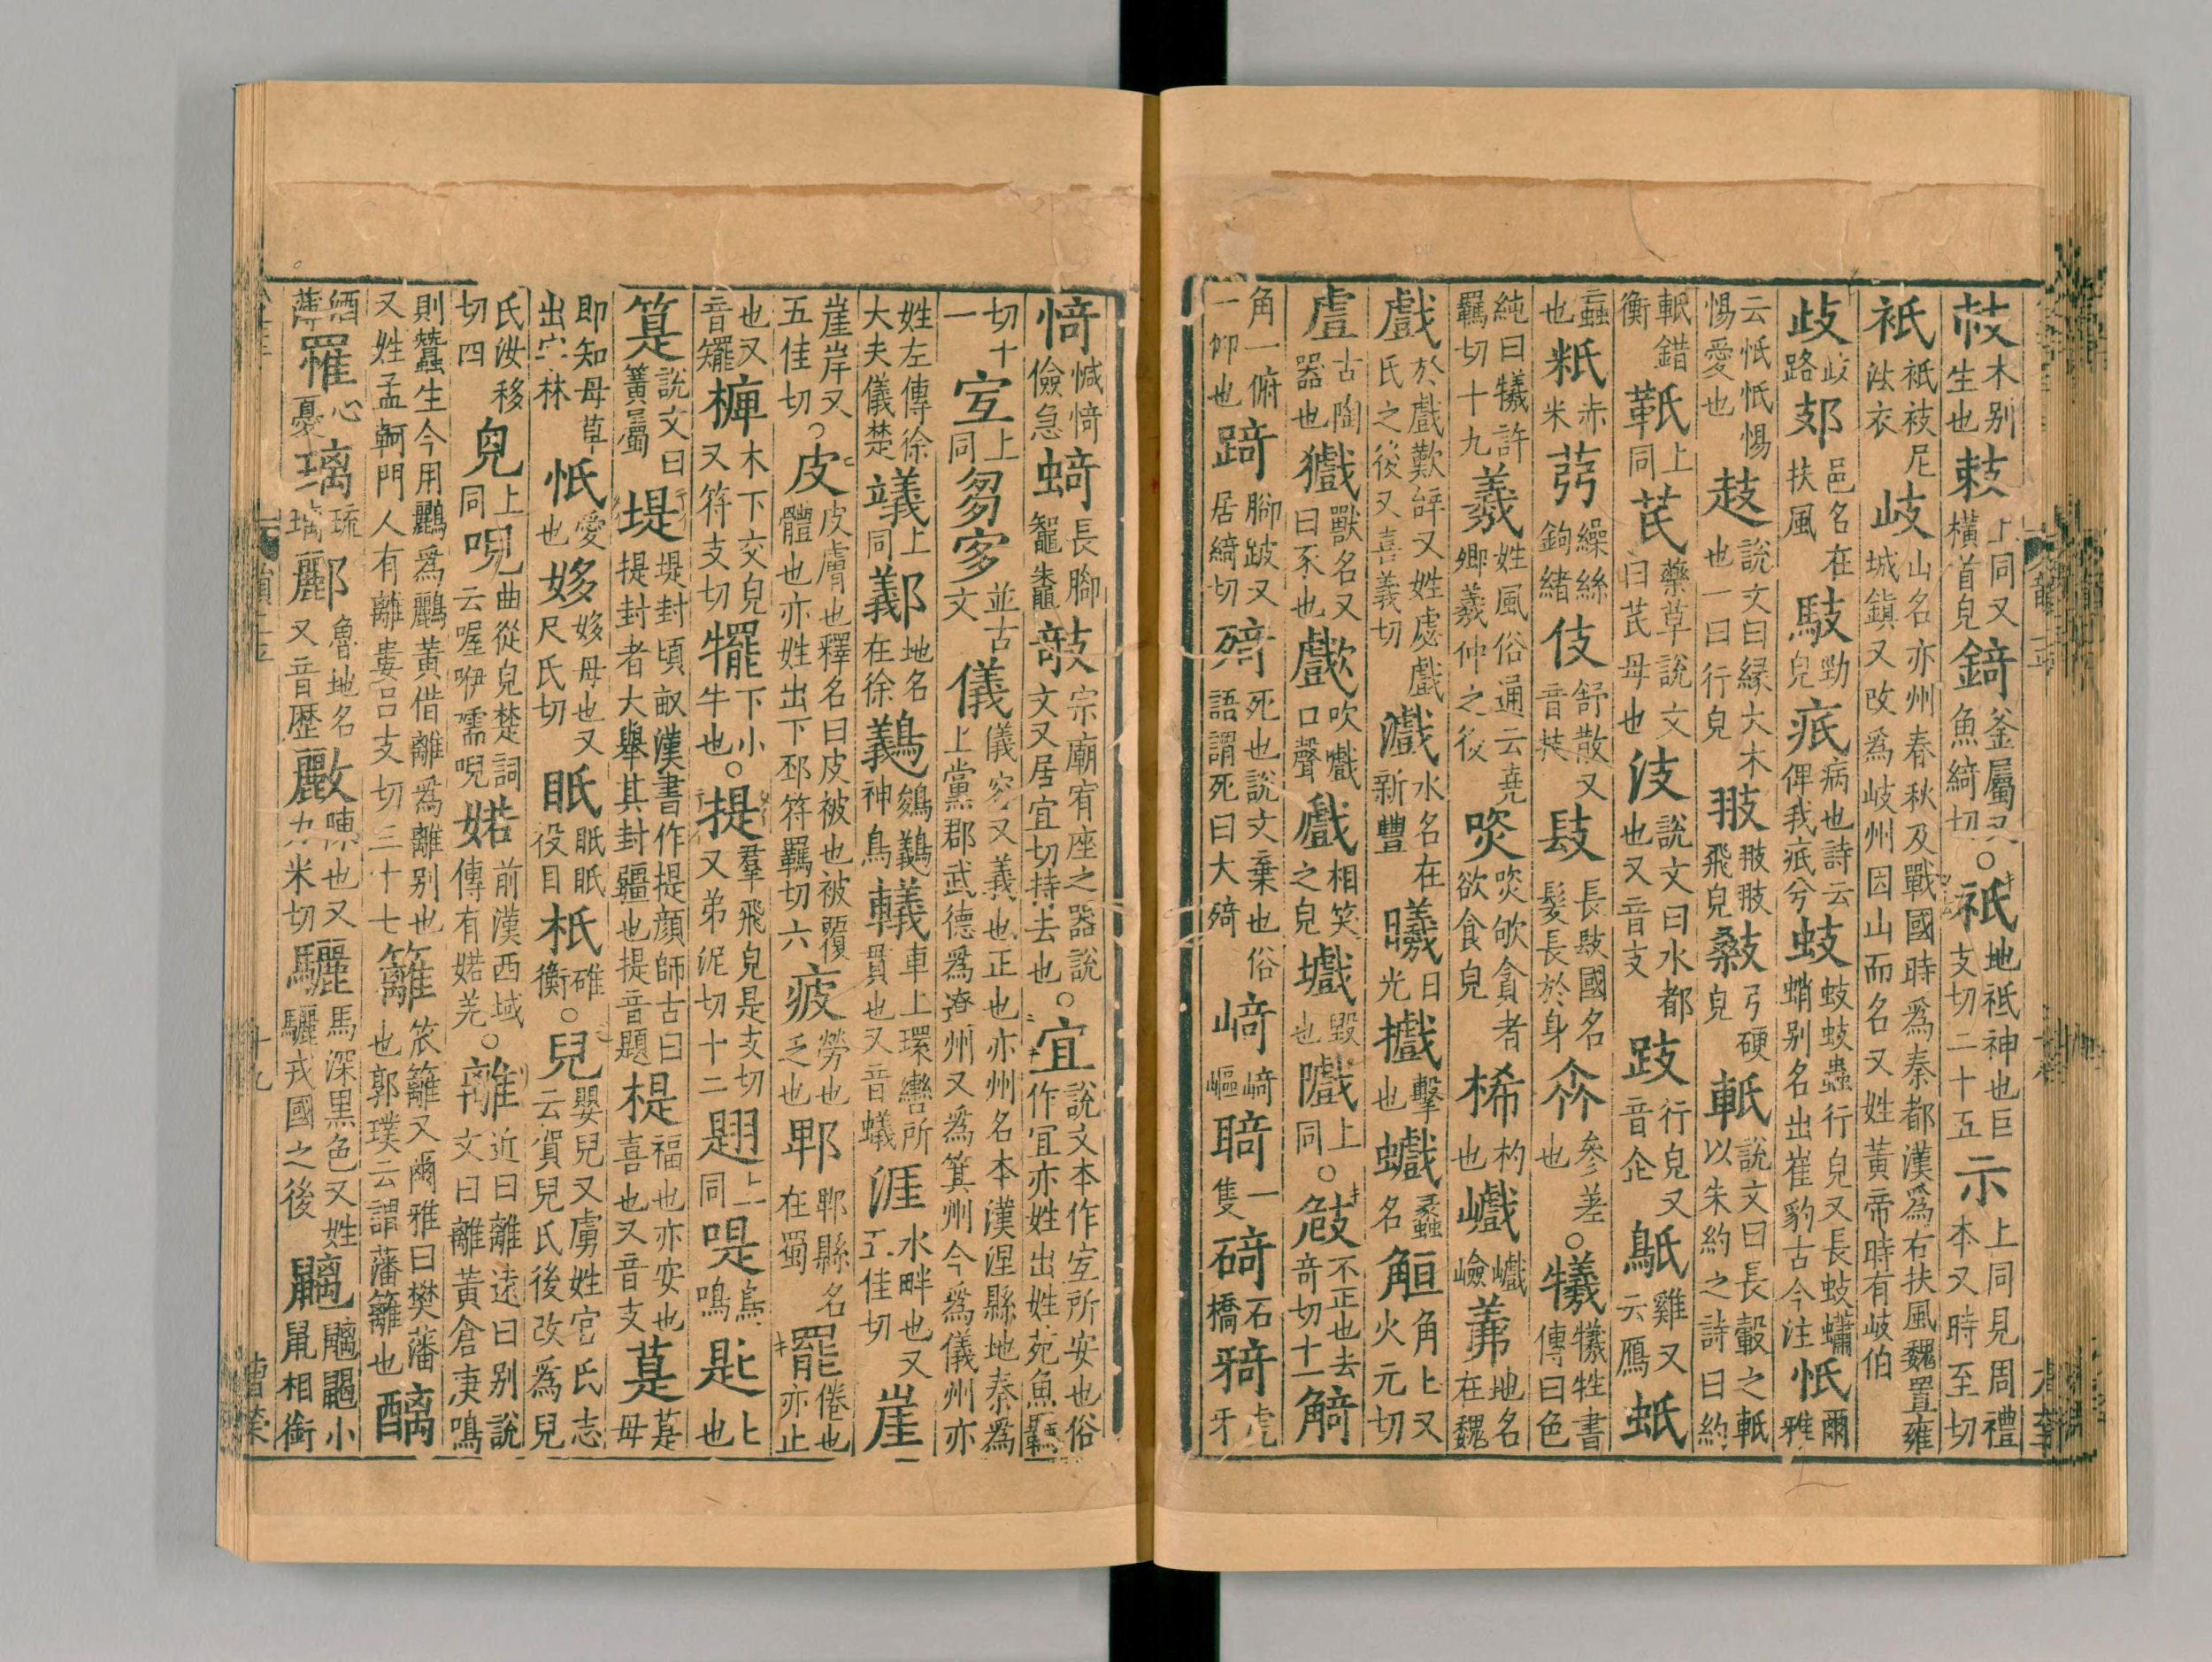 𣏚木别生也𢻃上同又橫首皃錡釜屬又魚綺切○祇地祇神也巨支切二十五示上同見周禮本又時至切
衹衹衼尼法衣岐山名亦州春秋及戰國時爲秦都漢爲右扶風魏置雍城鎮又改爲岐州因山而名又姓黃帝時有岐伯
歧歧路郂邑名在扶風馶勁皃疧病也詩云俾我疧兮蚑蚑蚑蟲行皃又長蚑蠨蛸别名出崔豹古今注忯爾雅
云忯忯惕惕愛也䞚說文曰緣大木也一曰行皃翍翍翍飛皃弓硬皃軝說文曰長轂之軝以朱約之詩曰約
軝錯衡𩉬上同芪藥草說文曰芪母也汥說文曰水都也又音支跂行皃又音企鳷雞又云鴈蚔
蟲也𥿊赤米𦭲繰絲鉤緒伎舒散又音技镻長镻國名髮長於身𠆩參差也○犧犧牲書傳曰色
純曰犧許羈切十九羲姓風俗通云堯卿羲仲之後㱆㱆欨貪者欲食皃桸杓也巇巇嶮䍤地名在魏
戲於戲歎辝又姓虙戲氏之後又喜義切㵘水名在新豐曦日光㩠擊也蠵䖥名觛角匕又火元切
䖒古陶器也㺣獸名又曰豕也㰕吹㰕口聲戯相笑之皃㙭毀也隵上同○䞿不正也去奇切十一觭
角一俯一仰也踦腳跛又居綺切㱦死也說文棄也俗語謂死曰大㱦崎崎嶇䏄一隻碕石橋㸦虎牙
㥓㥓㥓儉急𧍧長腳鼅鼄㩽宗廟宥座之器說文又居宜切持去也○宜說文本作𡧧所安也俗作宐亦姓出姓苑魚羈
切十一𡧧上同𡖊𡪀並古文儀儀容又義也正也亦州名本漢涅縣地秦爲上黨郡武德爲遼州又爲箕州今爲儀州亦
姓左傳徐大夫儀楚䇵上同鄯地名在徐鸃鵕鸃神鳥轙車上環轡所貫也又音蟻涯水畔也又五佳切崖
崖岸又五佳切○皮皮膚也釋名曰皮被也被覆體也亦姓出下邳符羈切六疲勞也乏也郫郫縣名在蜀罷倦也亦止
也又音矲椑木下交皃又符支切犤下小牛也○提羣飛皃是支切又弟泥切十二翨上同㖷鳥鳴匙匕也
筂說文曰簧屬堤堤封頃畝漢書作提顏師古曰提封者大舉其封疆也提音題禔福也亦安也喜也又音支䓳䓳母
即知母草出字林忯愛也姼姼母也又尺氏切眡眡眡役目柢碓衡○兒嬰兒又虜姓官氏志云賀兒氏後改爲兒
氏汝移切四皃上同唲曲從皃楚詞云喔咿嚅唲婼前漢西域傳有婼羌○離近曰離遠曰别說文曰離黃倉庚鳴
則蠶生今用鸝爲鸝黃借離爲離别也又姓孟軻門人有離婁呂支切三十七籬笊籬又爾雅曰樊藩也郭璞云謂藩籬也醨
酒薄罹心憂璃琉璃酈魯地名又音歷㰚陳也又力米切驪馬深黑色又姓驪戎國之後䶉䶉䶉小鼠相銜